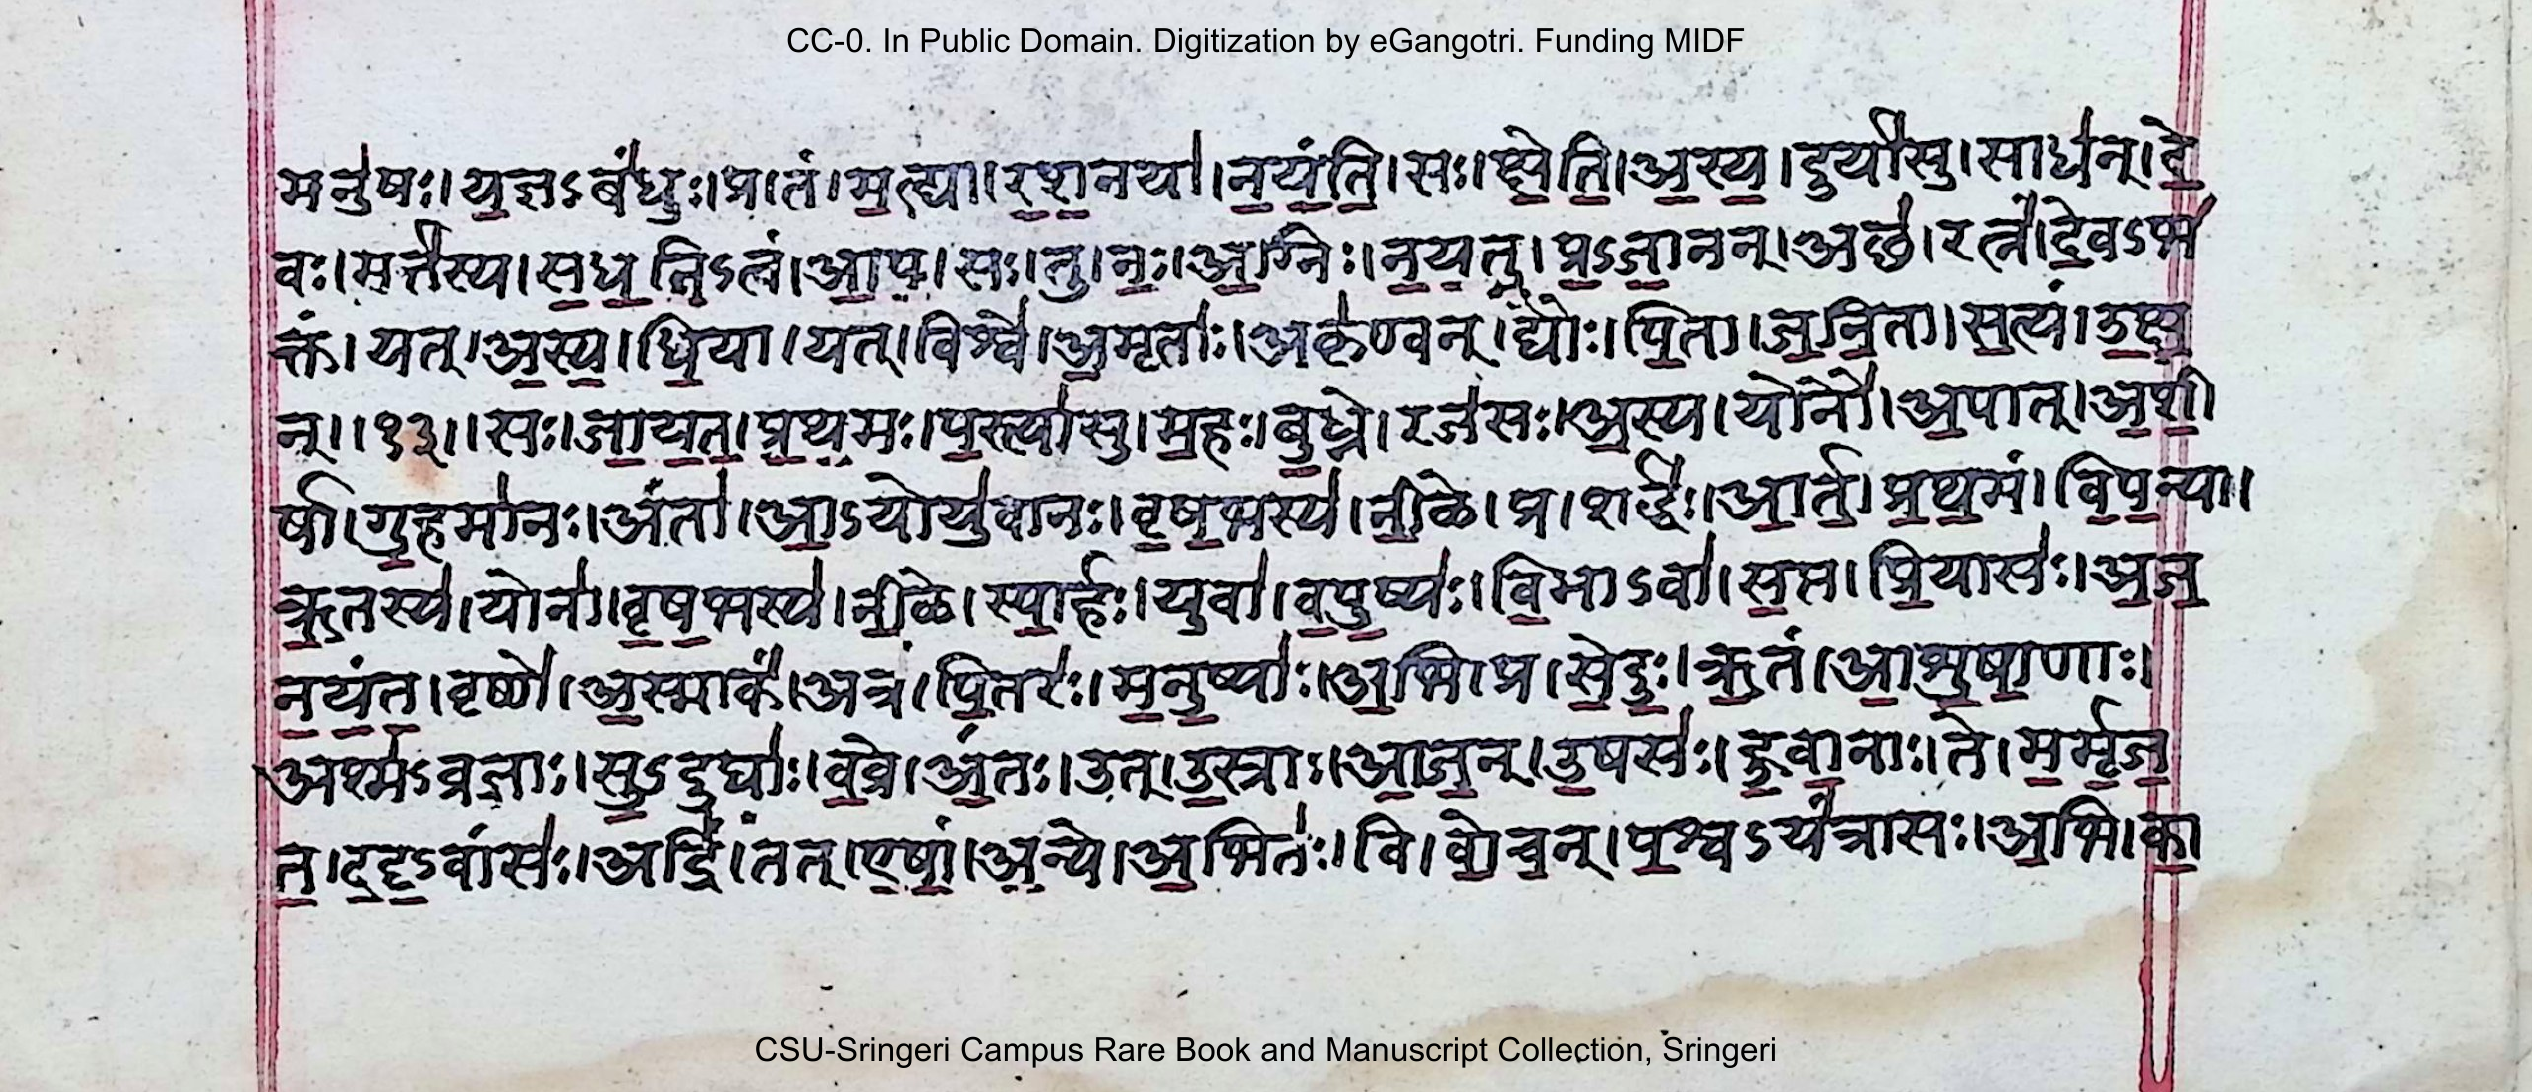 CC-0. In Public Domain. Digitization by eGangotri. Funding MIDF
मनु॑षः।य॒ज्ञऽबं॑धुः॒।प्र।तं।म॒त्ह्या।र॒श॒नया॑।न॒यं॒ति॒।सः।क्षे॒ति॒।अ॒स्य॒।दुर्या॑सु।साध॑न्।दे॒
वः।मर्त्त॑स्य।स॒ध॒नि॒ऽत्वं।आ॒प॒।सः।तु।नः॒।अ॒ग्निः।न॒य॒तु॒।प्र॒ऽजा॒नन्।अछ॑।रत्नं॑।दे॒वऽभ॑
क्तं।यत्।अ॒स्य॒।धि॒या।यत्।विश्वे॑।अ॒मृताः॑।अकृ॑ण्वन्।द्यौः।पि॒ता।ज॒नि॒ता।स॒त्यं।उ॒क्ष॒
न्।।१३।।सः।जा॒य॒त॒।प्र॒थ॒मः।प॒स्त्या॑सु।म॒हः।बु॒ध्ने।रज॑सः।अ॒स्य।योनौ॑।अ॒पात्।अ॒शी॒
र्षा।गु॒हमा॑नः।अंता॑।आ॒ऽयोयु॑वानः।वृ॒ष॒भस्य॑।नी॒ळे।प्र।शर्द्धः॑।आ॒र्त॒।प्र॒थ॒मं।वि॒प॒न्या।
ऋ॒तस्य॑।योना॑।वृ॒ष॒भस्य॑।नी॒ळे।स्पा॒र्हः।युवा॑।व॒पु॒ष्यः॑।वि॒भाऽवा॑।स॒प्त।प्रि॒यासः॑।अ॒ज॒
न॒यं॒त॒।वृष्णे॑।अ॒स्माकं॑।अत्र॑।पि॒तरः॑।म॒नु॒ष्याः॑।अ॒भि।प्र।से॒दुः॒।ऋ॒तं।आ॒शु॒षा॒णाः।
अश्म॑ऽव्रजाः।सु॒ऽदुघाः॑।व॒व्रे।अं॒तः।उत्।उ॒स्राः।आ॒ज॒न्।उ॒षसः॑।हु॒वा॒नाः।ते।म॒र्मृ॒ज॒
त॒।द॒दृ॒ऽवांसः॑।अद्रिं॑।तत्।ए॒षां॒।अ॒न्ये।अ॒भितः॑।वि।वो॒च॒न्।प॒श्वऽयं॑त्रासः।अ॒भि।का॒
CSU-Sringeri Campus Rare Book and Manuscript Collection, Sringeri